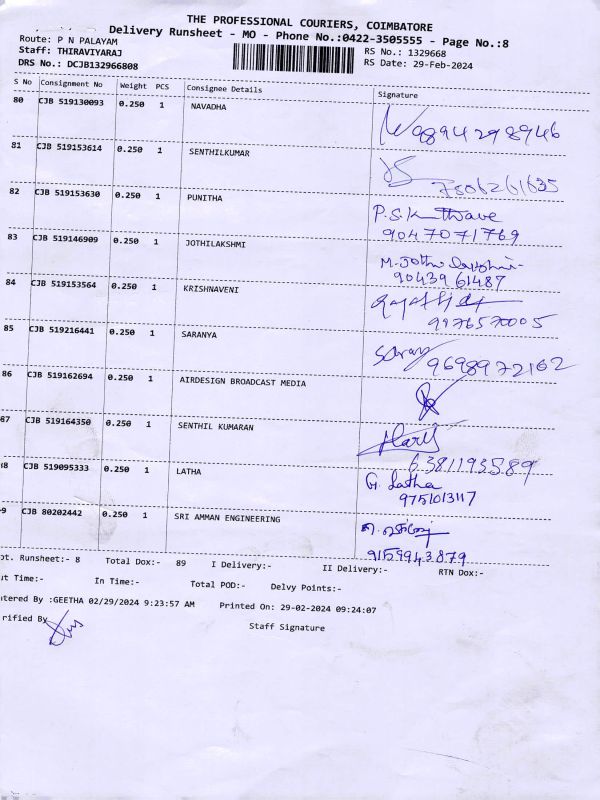 THE PROFESSIONAL COURIERS, COIMBATORE
Delivery Runsheet - MO - Phone No.:0422-3505555 - Page No.:8
Route: P N PALAYAM
Staff: THIRAVIYARAJ
DRS No.: DCJB132966808
RS No.: 1329668
RS Date: 29-Feb-2024
S No Consignment No Weight PCS Consignee Details Signature
80 CJB 519130093 0.250 1 NAVADHA 9894298946
81 CJB 519153614 0.250 1 SENTHILKUMAR 7506261635
82 CJB 519153630 0.250 1 PUNITHA P.S.K
9047071769
83 CJB 519146909 0.250 1 JOTHILAKSHMI M. Jothi
9043961487
84 CJB 519153564 0.250 1 KRISHNAVENI
9976570005
85 CJB 519216441 0.250 1 SARANYA Sarany 9698972162
86 CJB 519162694 0.250 1 AIRDESIGN BROADCAST MEDIA
87 CJB 519164350 0.250 1 SENTHIL KUMARAN
6381193589
88 CJB 519095333 0.250 1 LATHA G. Latha
9751013117
9 CJB 80202442 0.250 1 SRI AMMAN ENGINEERING
9159943879
pt. Runsheet:- 8 Total Dox:- 89 I Delivery:- II Delivery:- RTN Dox:-
ut Time:- In Time:- Total POD:- Delvy Points:-
ntered By :GEETHA 02/29/2024 9:23:57 AM Printed On: 29-02-2024 09:24:07
rified By
Staff Signature